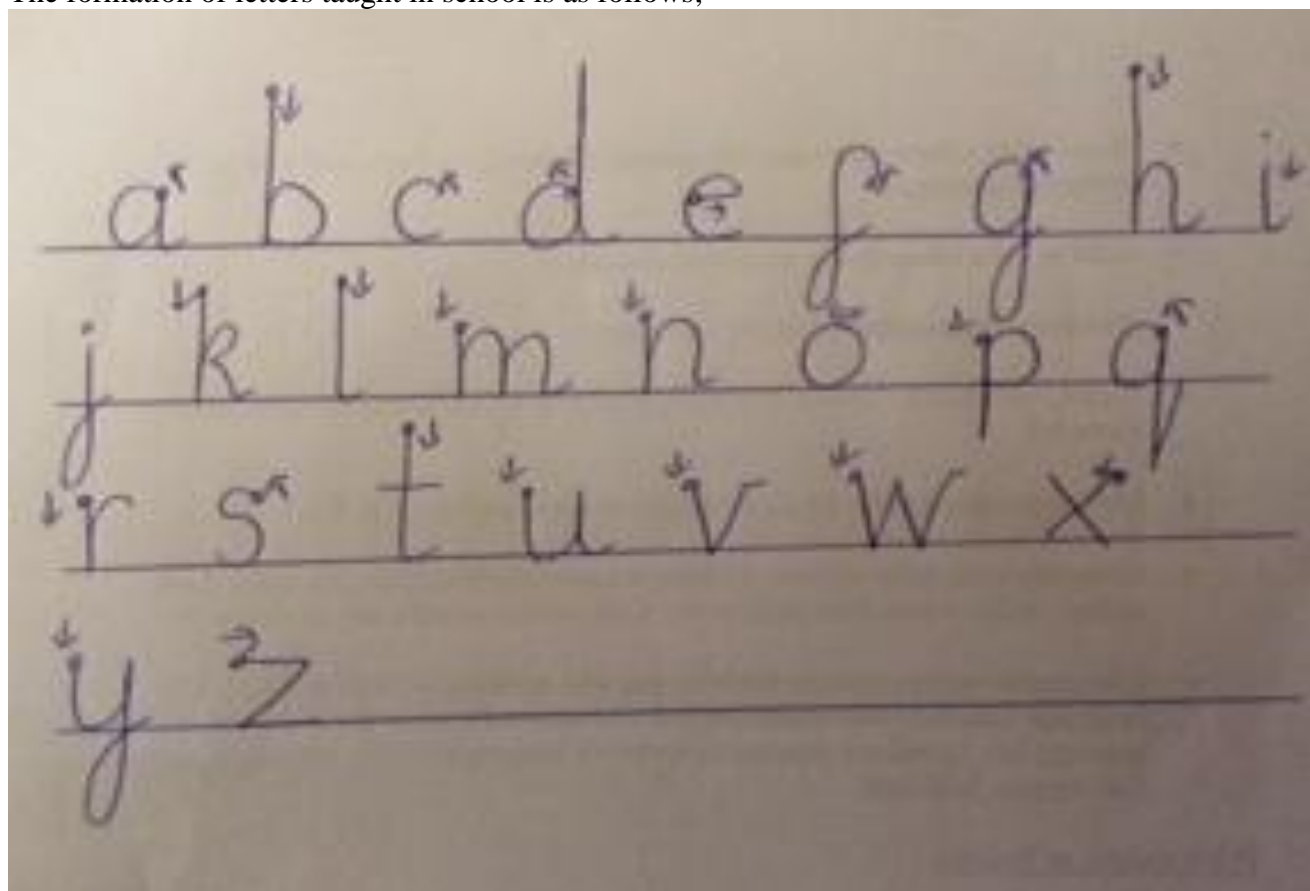 The formation of letters taught in school is as follows;
a b c d e f g h i
j k l m n o p q
r s t u v w x
y z